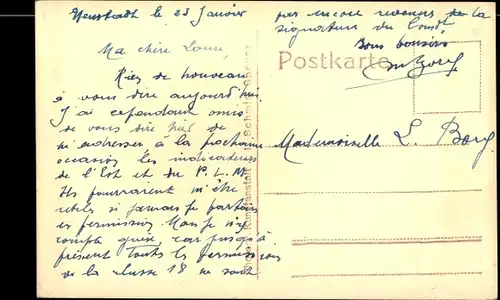 Neustadt le 23 Janvier
Ma chère Laure,
Rien de nouveau
à vous dire aujourd'hui.
J'ai cependant omis
de vous dire hier de
m'adresser à la prochaine
occasion les indicateurs
de l'Est et du P. L. M
Ils pourraient m'être
utiles si jamais je partais
en permission. Mais je n'y
compte guère, car jusqu'à
présent toutes les permissions
de la classe 18 ne sont
pas encore revenues de la
signature du
Bons baisers
Postkarte
Mademoiselle L. Borg